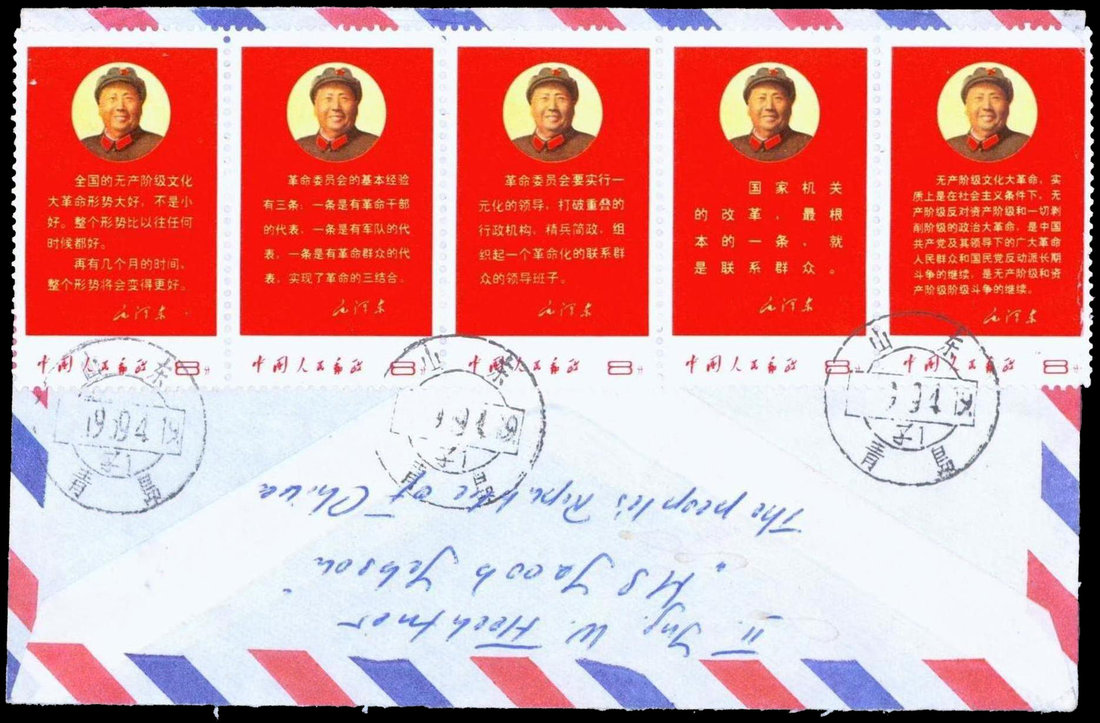 全国的无产阶级文化
大革命形势大好，不是小
好。整个形势比以往任何
时候都好。
再有几个月的时间，
整个形势将会变得更好。
毛泽东
中国人民邮政
8分
革命委员会的基本经验
有三条：一条是有革命干部
的代表，一条是有军队的代
表，一条是有革命群众的代
表，实现了革命的三结合。
毛泽东
中国人民邮政
8分
革命委员会要实行一
元化的领导，打破重叠的
行政机构，精兵简政，组
织起一个革命化的联系群
众的领导班子。
毛泽东
中国人民邮政
8分
国家机关
的改革，最根
本的一条，就
是联系群众。
毛泽东
中国人民邮政
8分
无产阶级文化大革命，实
质上是在社会主义条件下，无
产阶级反对资产阶级和一切剥
削阶级的政治大革命，是中国
共产党及其领导下的广大革命
人民群众和国民党反动派长期
斗争的继续，是无产阶级和资
产阶级阶级斗争的继续。
毛泽东
中国人民邮政
8分
山东
青岛
山东
青岛
山东
青岛
II. Ing. W.
"MS Jacob Jebsen"
The people's Republic of China